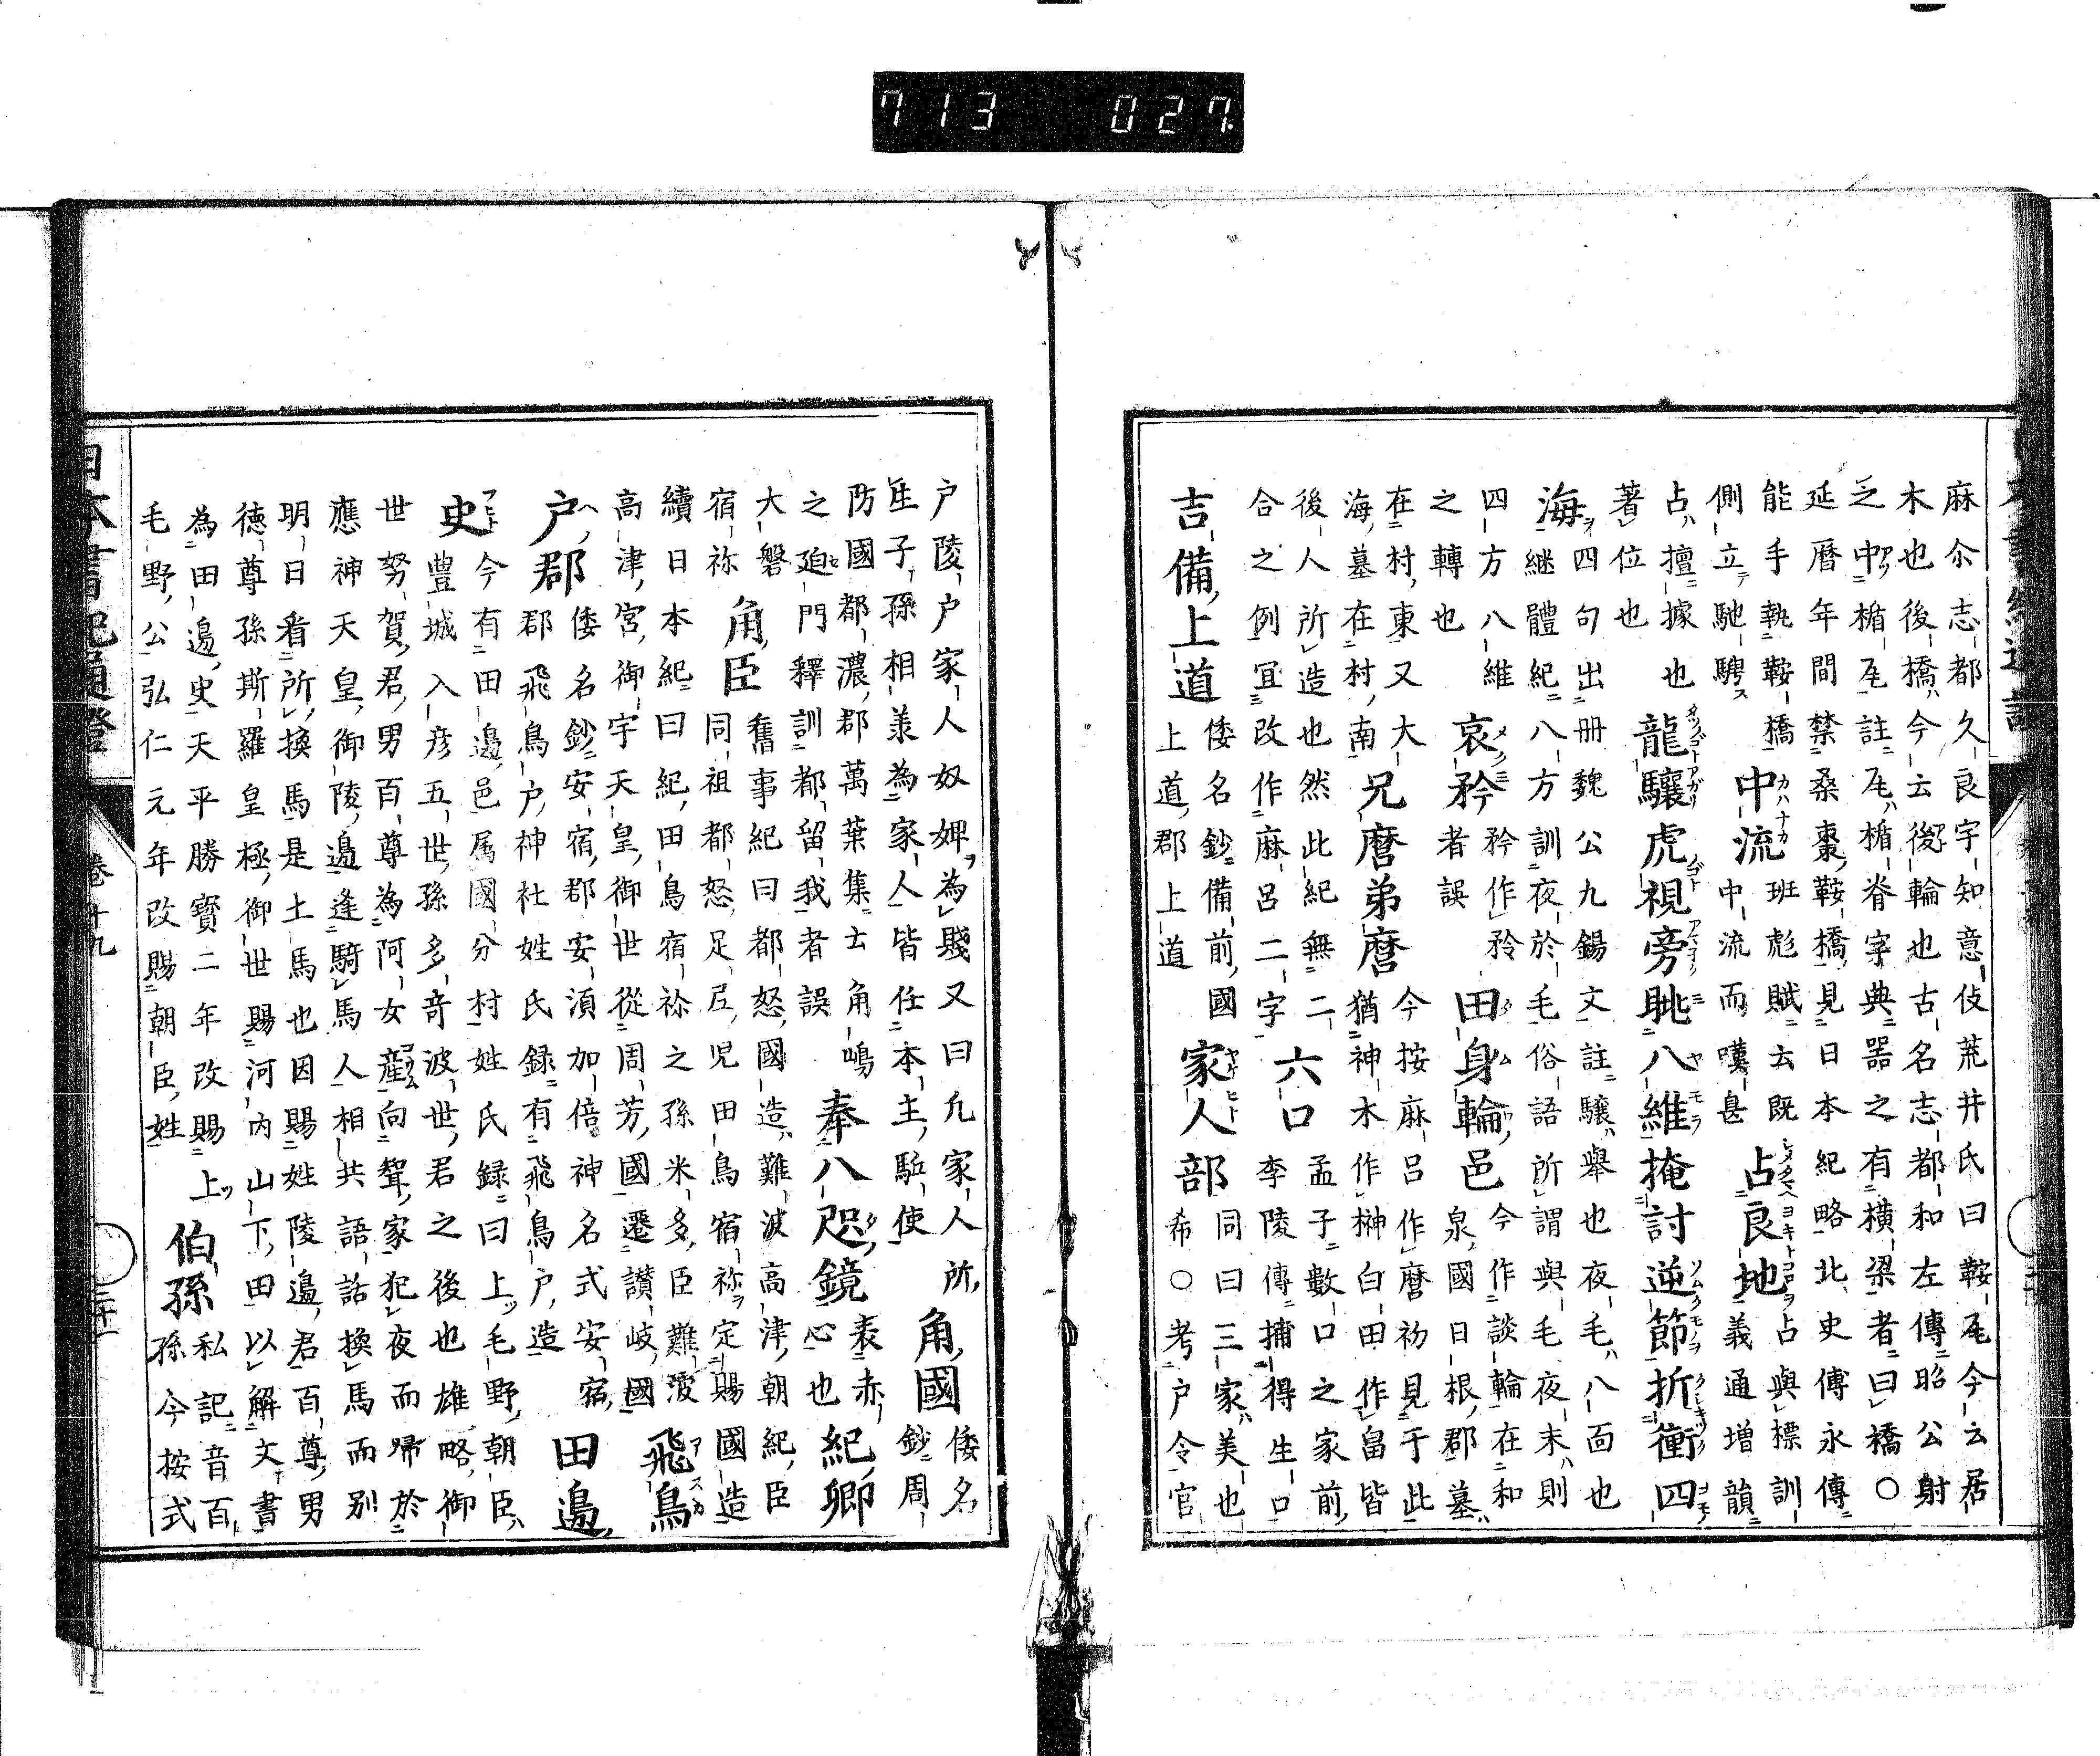 713 027
麻尒志都久良宇知意伎荒井氏曰鞍𡱈今云居
木也後橋今云後輪也古名志都和左傳昭公射
之中楯𡱈註𡱈楯脊字典器之有横梁者曰橋〇
延暦年間禁桑棗鞍橋見日本紀略北史傅永傳
能手執鞍橋
側立馳騁ス
中流カハナカ
班彪賦云既
中流而嘆甚
占良地シメタマヘヨキトコロヲ
占與標訓
義通増韻
占擅據也
著位也
龍驤虎視旁眺八維掩討逆節折衝四
海ヲ
四句出册魏公九錫文註驤擧也夜毛八面也
継體紀八方訓夜於毛俗語所謂與毛夜末則
四方八維
之轉也
哀矜
矜作矝
者誤
田身輪邑
今作談輪在和
泉國日根郡墓
在村東又大
海墓在村南
兄麿弟麿
今按麻呂作麿初見于此
猶神木作榊白田作畠皆
後人所造也然此紀無二
合之例宜改作麻呂二字
六口
孟子數口之家前
李陵傳捕得生口
吉備上道
倭名鈔備前國
上道郡上道
家人部ヤケヒト
同曰三家美也
希〇考戸令官
戸陵戸家人奴婢為賤又曰凢家人所
生子孫相羕為家人皆任本主駈使
角國
倭名
鈔周
防國都濃郡萬葉集云角嶋
之迫門釋訓都留我者誤
奉八咫鏡
表赤
心也
紀卿
大磐
角臣
舊事紀曰都怒國造難波高津朝紀臣
宿祢
同祖都怒足尼児田鳥宿祢定賜國造
續日本紀曰紀田鳥宿祢之孫米多臣難波
高津宮御宇天皇御世從周芳國遷讃岐國
飛鳥アスカ
戸郡
倭名鈔安宿郡安湏加倍神名式安宿
郡飛鳥戸神社姓氏録有飛鳥戸造
田邉
史フヒト
今有田邉邑属國分村姓氏録曰上毛野朝臣
豊城入彦五世孫多竒波世君之後也雄略御
世努賀君男百尊為阿女産向聟家犯夜而歸於
應神天皇御陵邉逢騎馬人相共語話換馬而别
明日看所換馬是土馬也因賜姓陵邉君百尊男
徳尊孫斯羅皇極御世賜河内山下田以解文書
為田邉史天平勝寳二年改賜上
毛野公弘仁元年改賜朝臣姓
伯孫
私記音百
孫今按式
日本書紀通證
卷十九